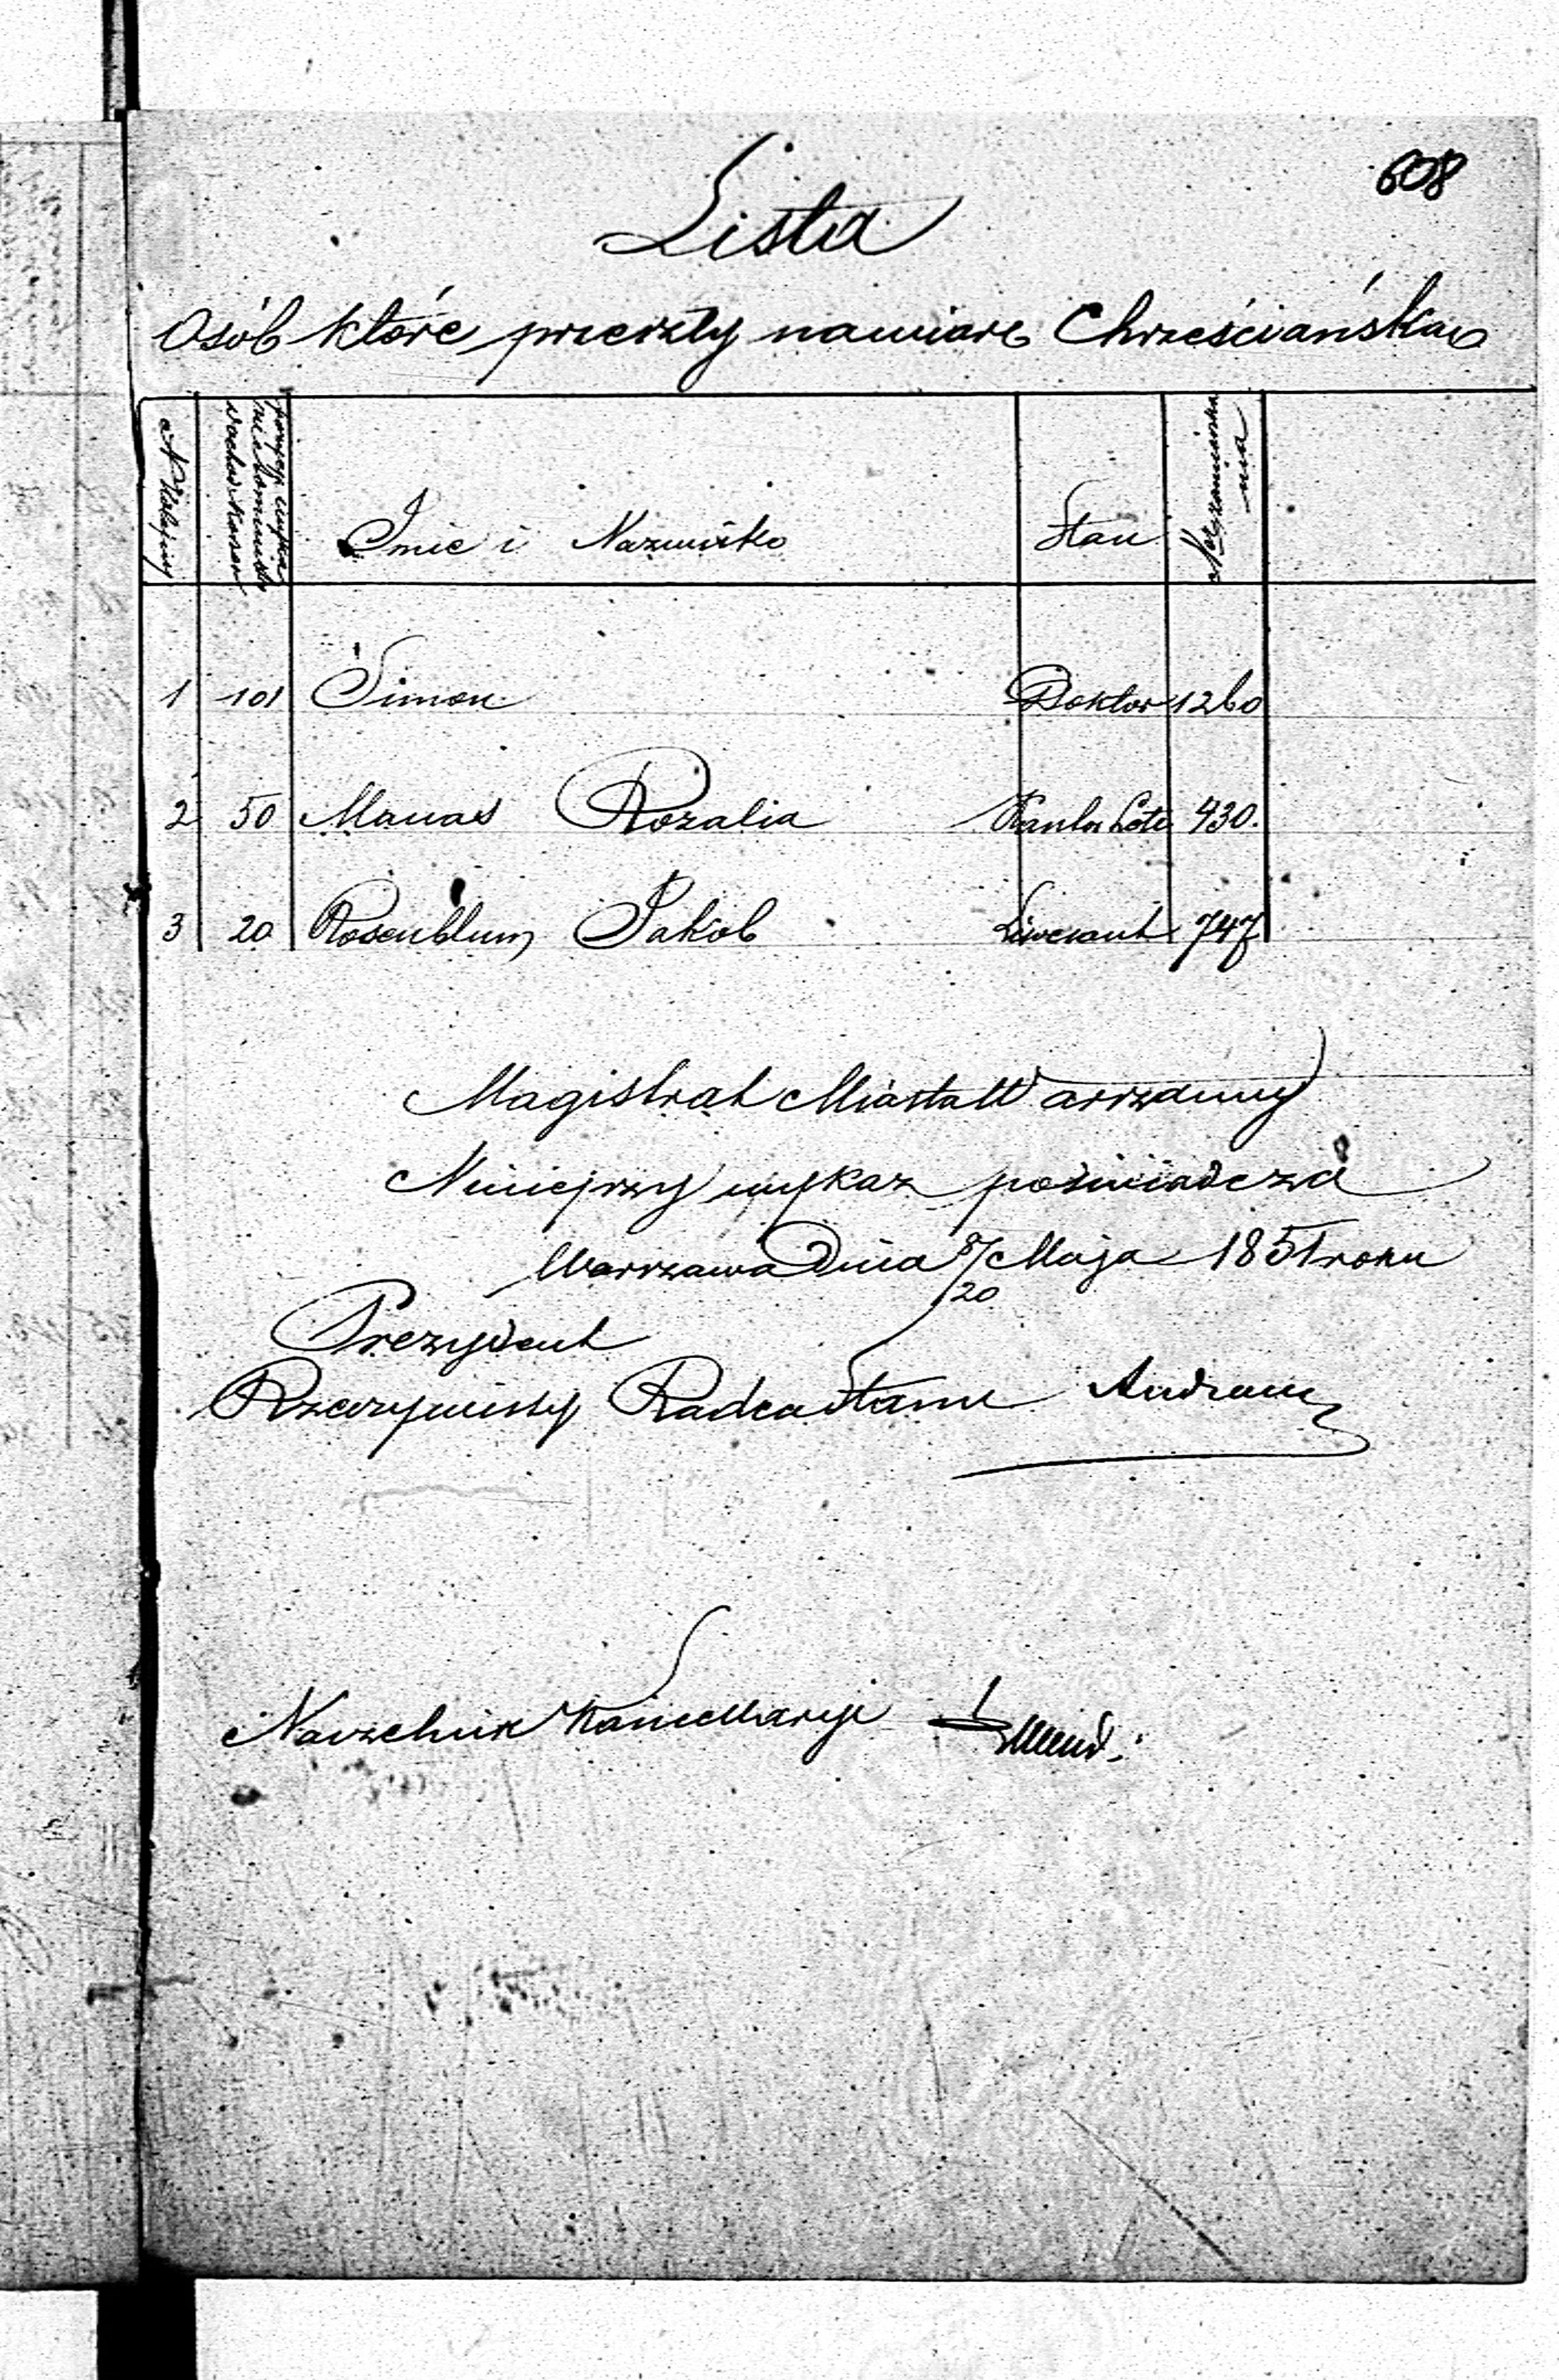 608
Lista
Osób które przeszły na wiarę Chrześciańską
N Kolejny
Imie i Nazwisko
Stan
N Zamieszkania
1 101 Simon Doktor 1260
2 50 Manas Rozalia Kantor Lote 430.
3 20 Rosenblum Jakob Liwerant 747
Magistrat Miasta Warszawy
Niniejszy wykaz poświadcza
Warszawa Dnia 8/20 Maja 1851 roku
Prezydent
Rzeczywisty Radca Stanu
Naczelnik Kancellaryi